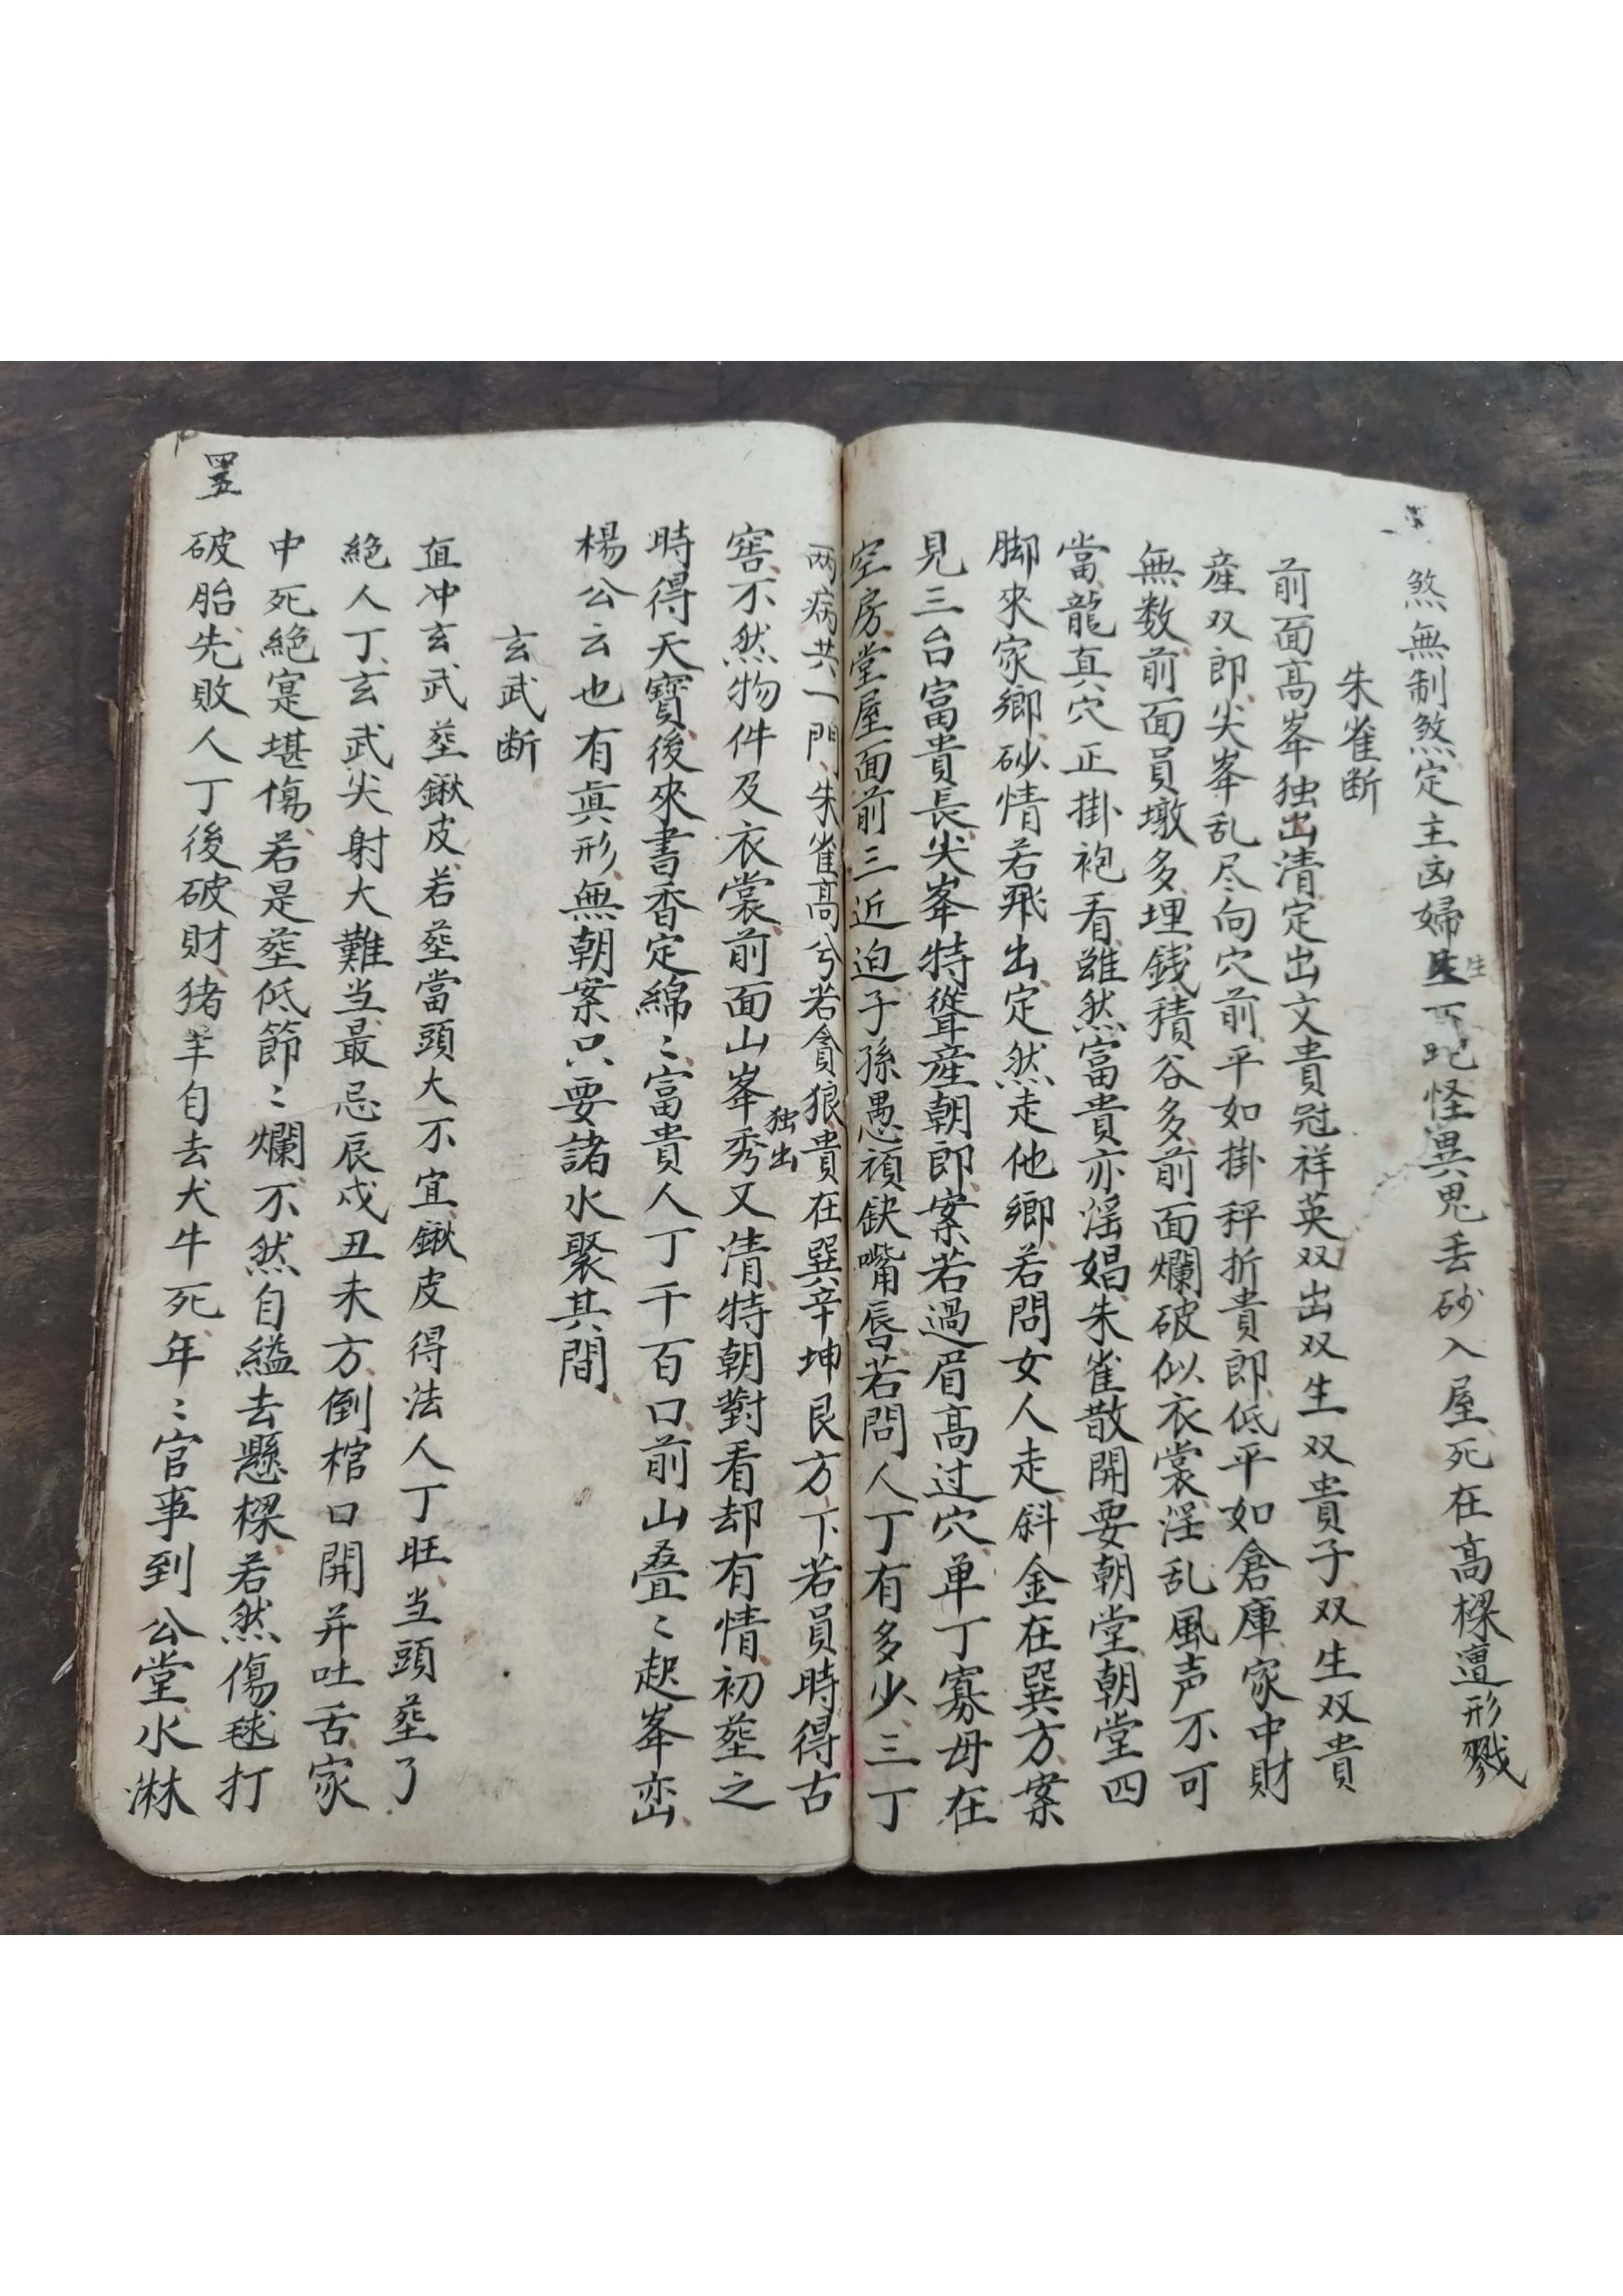 煞無制煞定主凶婦生下蛇怪異鬼丢砂入屋死在高樑遭形戮
朱雀断
前面高峯独出清定出文貴冠祥英双出双生双貴子双生双貴
産双即尖峯乱尽向穴前平如掛秤折貴即低平如倉庫家中財
無数前面員墩多埋銭積谷多前面爛破似衣裳淫乱風声不可
當龍真穴正掛袍看雖然富貴亦淫娼朱雀散開要朝堂朝堂四
脚來家鄉砂情若飛出定然走他鄉若問女人走斜金在巽方案
見三台富貴長尖峯特聳産朝郎案若過眉高过穴单丁寡母在
空房堂屋面前三近迫子孫愚頑缺嘴唇若問人丁有多少三丁
两病共一門朱雀高兮若貪狼貴在巽辛坤艮方下若員時得古
窖不然物件及衣裳前面山峯秀独出又清特朝對看却有情初塟之
時得天寶後來書香定綿〻富貴人丁千百口前山叠〻起峯峦
楊公云也有真形無朝案只要諸水聚其間
玄武断
直冲玄武塟鍬皮若塟當頭大不宜鍬皮得法人丁旺当頭塟了
絶人丁玄武尖射大難当最忌辰戍丑未方倒棺口開并吐舌家
中死絶寔堪傷若是塟低節〻爛不然自縊去懸樑若然傷毬打
破胎先敗人丁後破財猪羊自去犬牛死年〻官事到公堂水淋